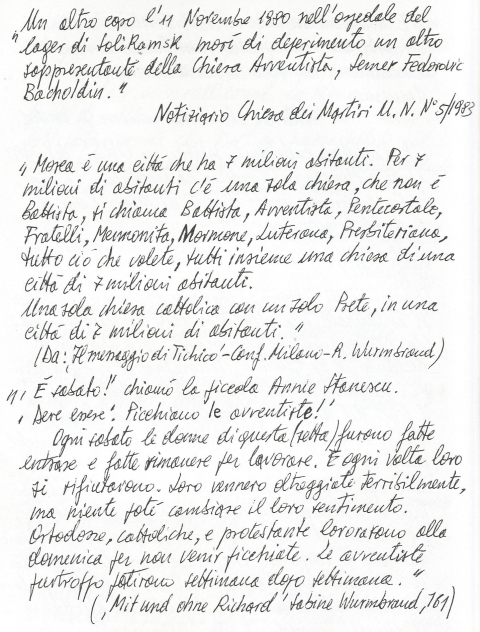 "Un altro caso l'11 Novembre 1980 nell'ospedale del
lager di SoliKamsk morí di deperimento un altro
rappresentante della Chiesa Avventista, Semer Fedorovic
Bacholdin."
Notiziario Chiesa dei Martiri U. N. N° 5/1983
"Mosca é una cittá che ha 7 milioni abitanti. Per 7
milioni di abitanti c'é una sola chiesa, che non é
Battista, si chiama Battista, Avventista, Pentecostale,
Fratelli, Mennonita, Mormone, Luterana, Presbiteriana,
tutto ció che volete, tutti insieme una chiesa di una
cittá di 7 milioni abitanti.
Una sola chiesa cattolica con un solo Prete, in una
cittá di 7 milioni di abitanti."
(Da: Il messaggio di Tichico - Conf. Milano - R. Wurmbrand)
"' É sabato!" chiamó la piccola Annie Stanescu.
'Deve essere'. Picchiano le avventiste!'
Ogni sabato le donne di questa (setta) furono fatte
entrare e fatte rimanere per lavorare. E ogni volta loro
si rifiutarono. Loro vennero oltraggiate terribilmente,
ma niente poté cambiare il loro sentimento.
Ortodosse, cattoliche, e protestante lavorarono alla
domenica per non venir picchiate. Le avventiste
purtroppo patirono settimana dopo settimana."
(,Mit und ohne Richard' Sabine Wurmbrand, 161)